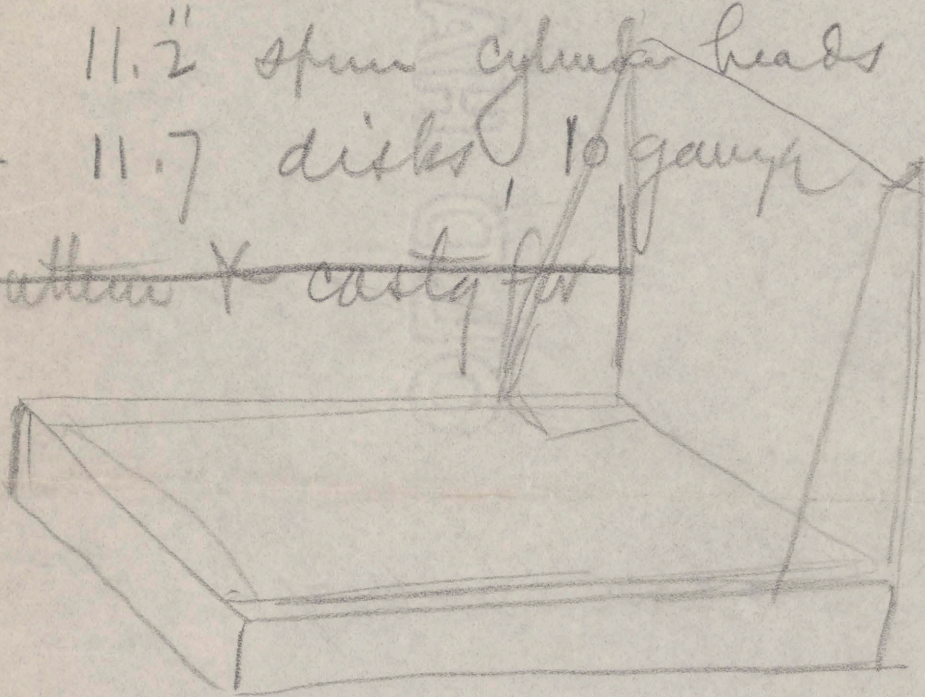 11.2" spun cylinder heads
- 11.7 disks, 10 gauge
costg for